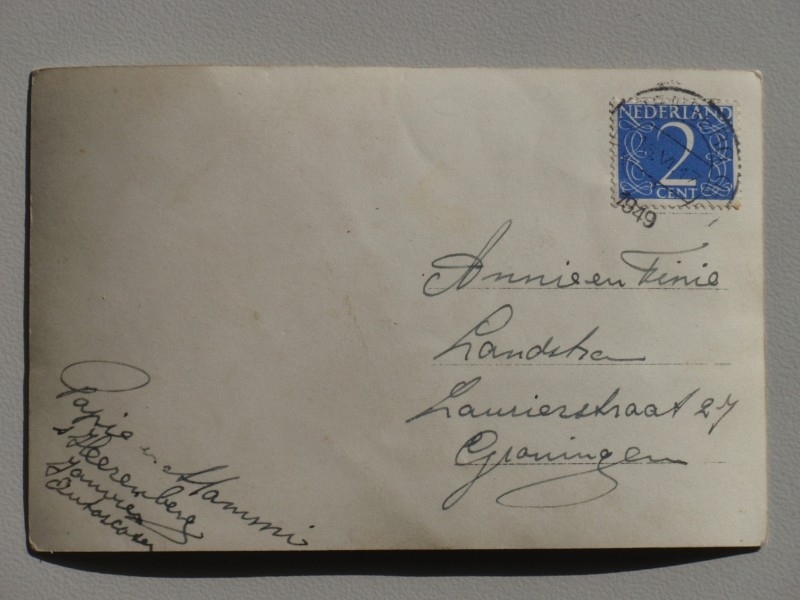 NEDERLAND
2
CENT
1949
Annie en Tinie
Landstra
Laurierstraat 27
Groningen
Pappie en Mammie
s Heerenberg